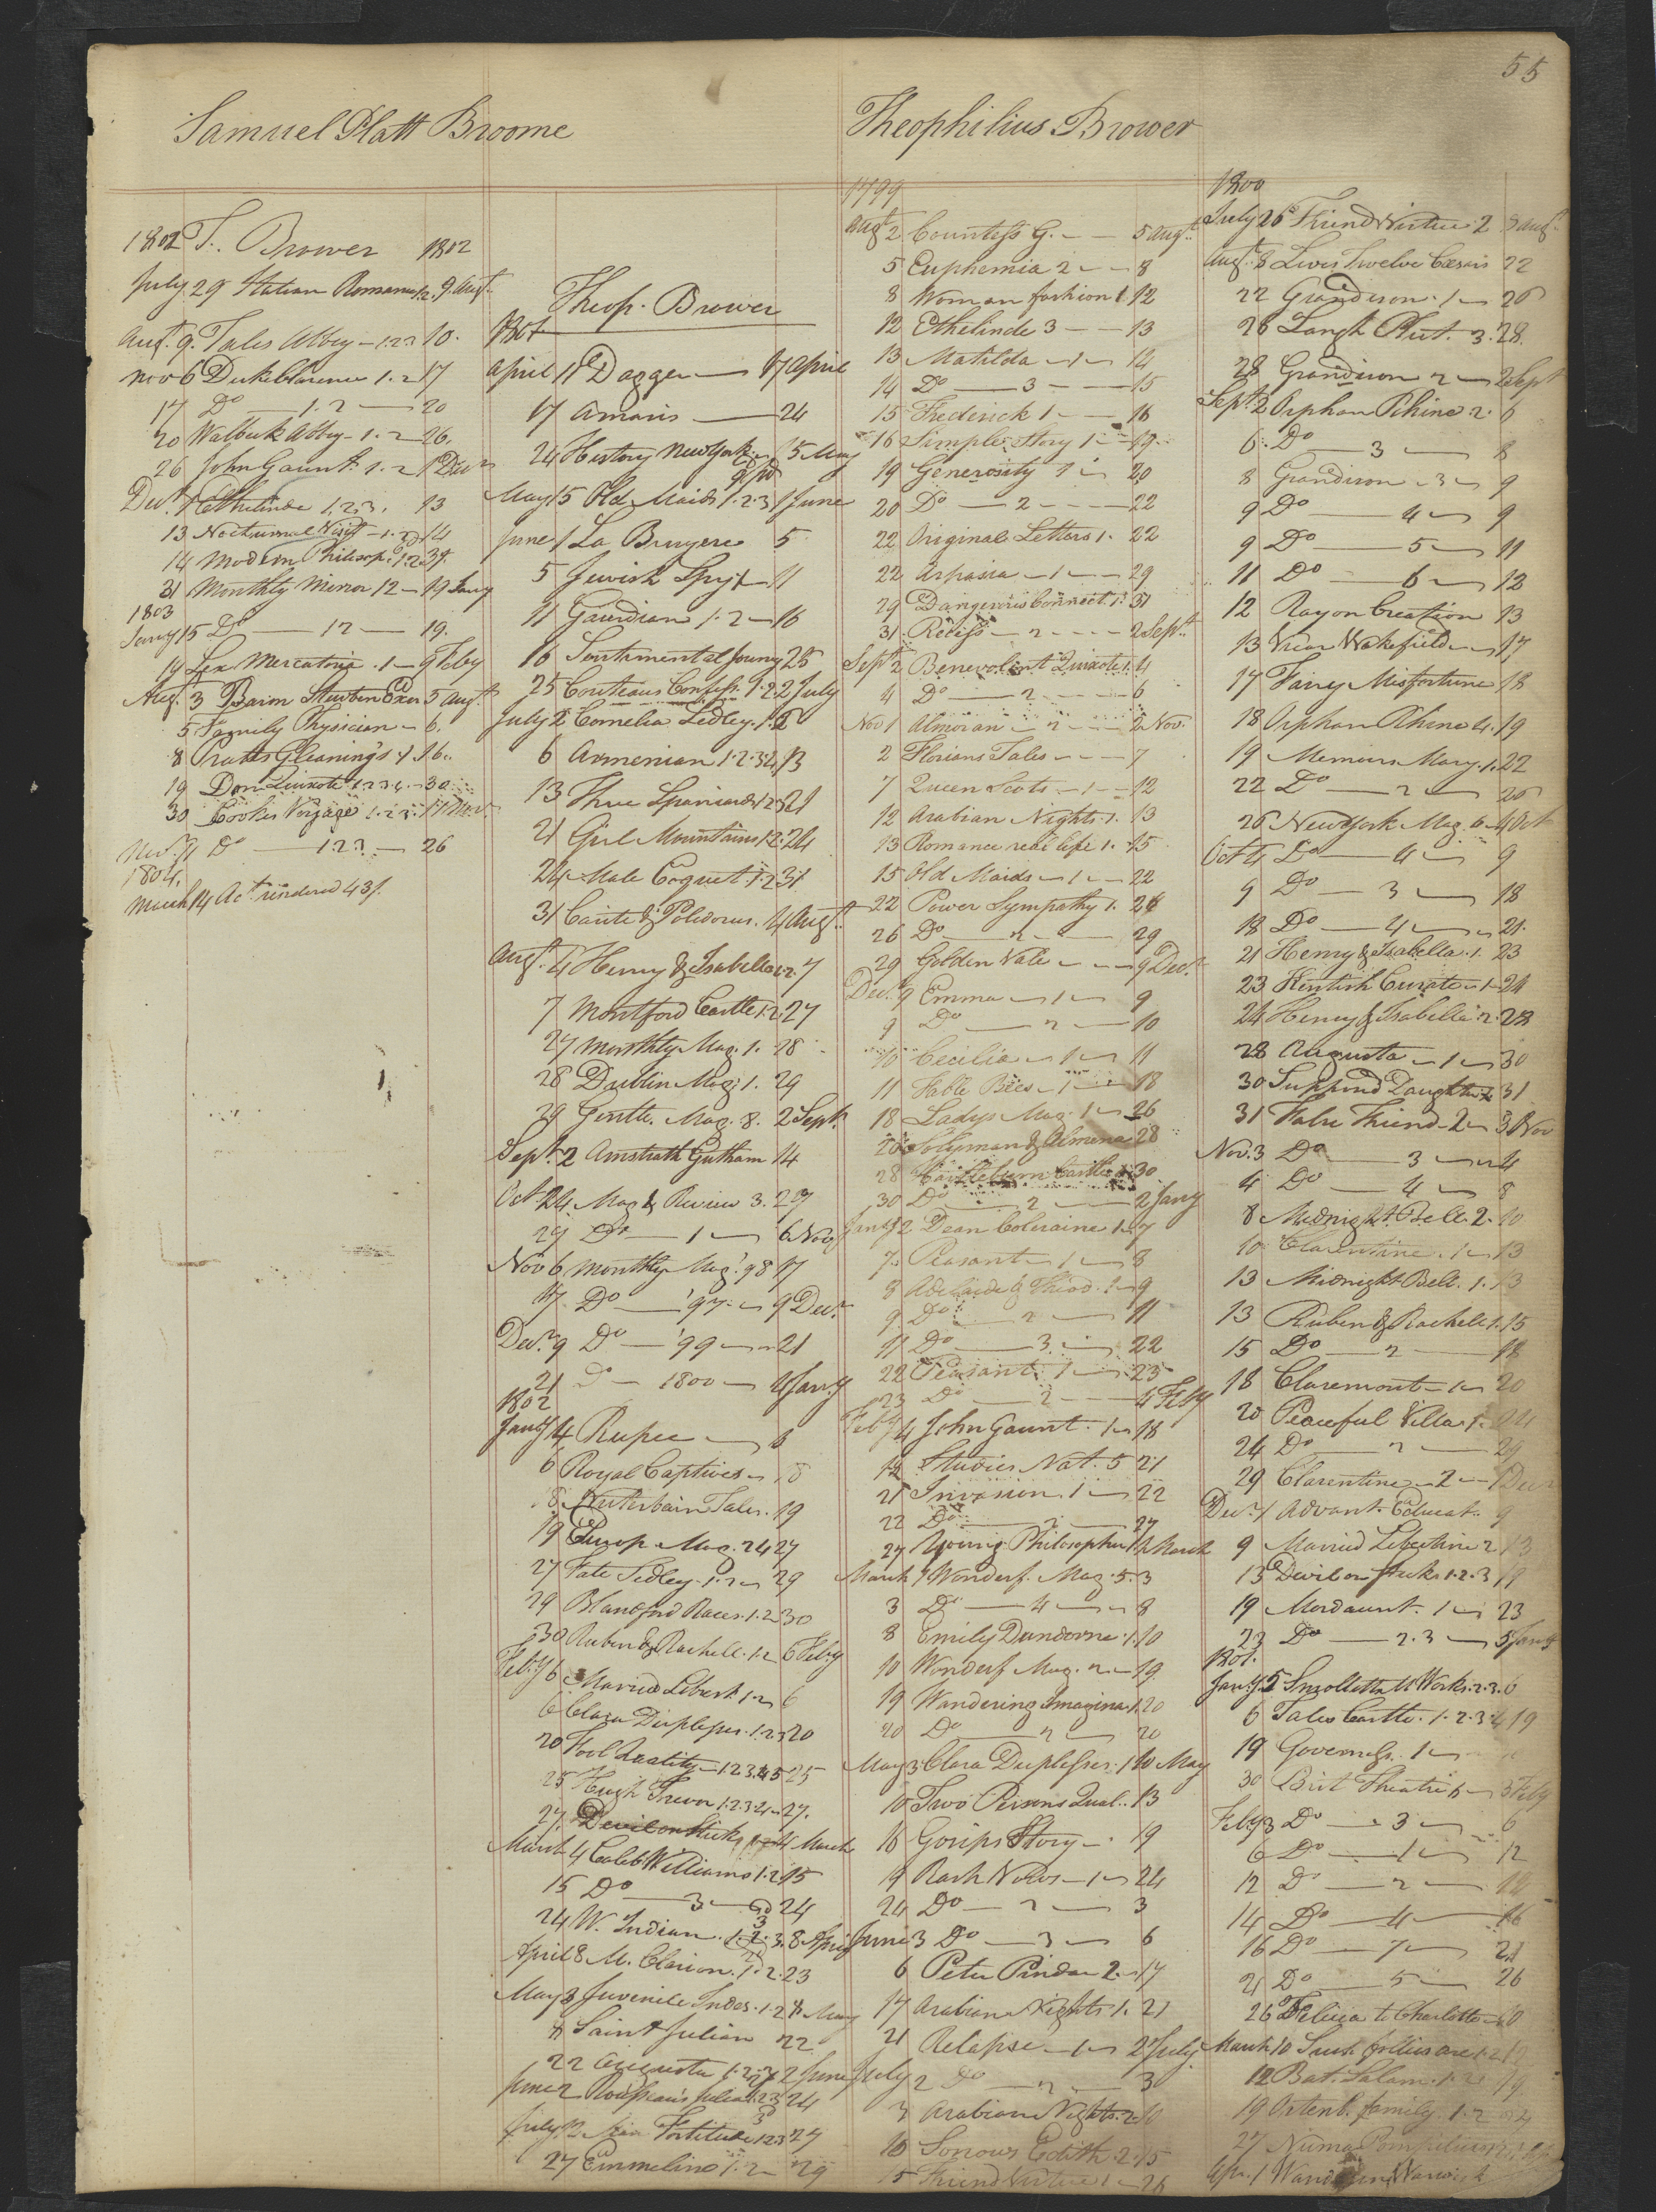 55
Samuel Platt Broome
1802 T. Brower 1802
July 29 Italian Romance 1.2. 9 Aust.
Aust. 9. Tales Abbey — 1.2.3 10.
Nov 6 Duke Clarence 1.2 17
17 Do — 1.2 — 20
20 Walbeck Abbey — 1.2 — 26.
26 John Gaunt. 1.2 1 Decr
Decr. 1 Ethelinde 1.2.3. 13
13 Nocturnal Visit — 1.2 14
14 Modern Philosop. 1.2 31.
31 Monthly Mirror 12 — 19 Jany
1803
Jany 15 Do — 12 — 19.
19 Lex Mercatoria. 1 — 9 Feby
Aug. 3 Baron Steuben Exer 5 Augt
5 Family Physician — 6.
8 Pratts Gleanings 1. 16.
19 Don Quixote 1.2.3.4. — 30
30 Cooks Voyage 1.2.3. 11 Nov.
Nov. 11 Do — 1.2.3 — 26
1804.
March 14 Act rendered 43/.
Theop. Brower
1801
April 11 Dagger — 17 April
17 Amoris — 24
24 History New York 15 May
May 15 Old Maids 1.2.3 1 June
June 1 La Bruyere 5
5 Jewish Spy 1 — 11
11 Gaurdian 1.2 — 16
16 Sentimental Journy 25
25 Couteaus Confess. 1.2 2 July
July 2 Cornelia Sedley. 1.2 6
6 Armenian 1.2.3.4 13
13 Three Spaniards 1.2 21
21 Girl Mountains 1.2. 24
24 Male Coquet 1.2 31
31 Cante & Polidorus. 4 Augt.
Augt. 4 Henry & Isabella 1.2. 7
7 Montford Castle 1.2. 27
27 Monthly Mag. 1. 28
28 Dublin Mag. 1. 29
29 Gentle. Mag. 8. 2 Sept.
Sept. 2 Amstrath Gutham 14
Oct 24 Mag & Review 3. 29
29 Do — 1 — 6 Nov
Nov 6 Monthly Mag. '98 17
17 Do — '97 — 9 Decr.
Decr. 9 Do — '99 — 21
21 Do — 1800 — 4 Jany
1802
Jany 4 Rupee — 6
6 Royal Captives — 8
8 Winterbain Tales. 19
19 Europ. Mag. 24 27
27 Fate Sedley. 1.2 — 29
29 Blandford Races. 1.2 30
30 Ruben & Rachell. 1.2 6 Feby
Feby 6 Married Libert. 1.2 6
6 Clara Duplesses. 1.2 20
20 Fool Quality — 1.2.3.4.5 25
25 Hugh Trevor 1.2.3.4 — 27.
27. Devil on Sticks 4 March
March 4 Caleb Williams 1.2 15
15 Do — 3 — 24
24 W. Indian. 1.2.3. 8 April
April 8 M. Clarion. 1.2. 23
May 3 Juvenile Indes. 1.2 8 May
8 Saint Julian 22
22 Augusta 1.2.3 2 June
June 2 24
July 2 Fortitude 1.2.3 27
27 Emmeline 1.2 — 29
Theophilius Brower
1799
Augt 2 Countess G. — 5 Augt.
5 Euphemia 2 — 8
8 Woman fashion 1. 12
12 Ethelinde 3 — 13
13 Matilda — 1 — 14
14 Do — 3 — 15
15 Frederick 1 — 16
16 Simple Story 1 — 19.
19 Generosity 1 — 20
20 Do — 2 — 22
22 Original Letters 1. 22
22 Aspasia — 1 — 29
29 Dangerous Connect. 1. 31
31. Recess — 2 — 2 Sept.
Sept 2 Benevolent Quixote 1. 4
4 Do — 2 — 6
Nov 1 Almoran — 2 — 2 Nov.
2 Florians Tales — 7
7 Queen Scots — 1 — 12
12 Arabian Nights. 1. 13
13 Romance real life 1. 15
15 Old Maids — 1 — 22
22 Power Sympathy 1. 26
26 Do — 2 — 29
29 Golden Vale — 9 Decr.
Decr. 9 Emma — 1 — 9
9 Do — 2 — 10
10 Cecilia — 1 — 11
11 Fable Bees — 1 — 18
18 Ladys Mag. 1 — 26
26 Solyman & Almena 28
28 Castle 30
30 Do — 2 — 2 Jany
Jany 2 Dean Coleraine 1. 7
7. Peasant — 1 — 8
8 Adelaide & Theod. 1 — 9
9. Do — 2 — 11
11 Do — 3. — 22
22 Peasant 1 — 23
23 Do — 2 — 4 Feby
Feby 4 John Gaunt. 1 — 18
18 Studies Nat. 5 21
21 Invasion. 1 — 22
22 Do — 2 — 27
27 Young Philosopher 1. 1 March
March 1 Wonderf. Mag. 5. 3
3 Do — 4 — 8
8 Emily Dundorne. 1. 10
10 Wonderf. Mag. 2. — 19
19 Wandering Imagina. 1. 20
20 Do — 2 — 20
May 3 Clara Duplesses. 1 10 May
10 Two Persons Qual. 13
16 Gosips Story — 19
19 Rash Vows — 1 — 24
24 Do — 2 — 3
June 3 Do — 3 — 6
6 Peter Pindar 2. — 17
17 Arabian Nights 1. 21
21 Relapse — 1 — 2 July
July 2 Do — 2 — 3
3 Arabian Nights. 2. 10
10 Sorrows Edith. 2. 15
15 Friend Virtue 1 — 26
1800
July 26 Friend Virtue. 2 8 Augt.
Augt. 8 Lives Twelve Cæsars 22
22 Grandison. 1 — 26
26 Langh. Plut. 3. 28.
28 Grandison 2 — 2 Sept
Sept. 2 Orphan Rhine 2. 6
6. Do — 3 — 8
8 Grandison — 3 — 9
9 Do — 4 — 9
9 Do — 5 — 11
11 Do — 6 — 12
12 Ray on Creation 13
13 Vicar Wakefield — 17
17 Fairy Misfortune 18
18 Orphan Rhine 4. 19
19 Memoirs Mary. 1. 22
22 Do — 2 — 26
26 New York Mag. 6 — 4 Oct
Oct 4 Do — 4 — 9
9 Do — 3 — 18
18 Do — 4 — 21.
21 Henry & Isabella. 1. 23
23 Kentish Curate — 1 — 24
24 Henry & Isabella 2. 28
28 Augusta — 1 — 30
30 Supposd Daughter 31
31 False Friend — 2 — 3 Nov
Nov. 3 Do — 3 — 4
4 Do — 4 — 8
8 Midnight Bell. 2. 10
10 Clarentine. 1 — 13
13 Midnight Bell. 1. 13
13 Ruben & Rachell 1. 15
15 Do — 2 — 18
18 Claremont — 1 — 20
20 Peaceful Villa 1. 24
24 Do — 2 — 29
29 Clarentine — 2 — 1 Decr
Decr. 1 Advant. Educat. 9
9 Married Libertine 2 13
13 Devil on sticks 1.2.3 19
19 Mordaunt. 1 — 23
23 Do — 2.3 — 5 Jany
1801.
Jany. 5 Smolletts Works. 2.3. 6
6 Tales Castle. 1.2.3.4 19
19 Governess. 1 —
30 Brit Theatre 6 — 3 Feby
Feby 3 Do — 3 — 6
6 Do — 1 — 12
12 Do — 2 — 14
14 Do — 4 — 16
16 Do — 7 — 21
21 Do — 5 — 26
26 Felicia to Charlotte — 10
March 10 Such follies are 1.2 12
12 Bat. Salam. 1.2 19
19 Ortenb. family. 1.2 24
27 Numa Pompilius
Apr. 1 Warwick